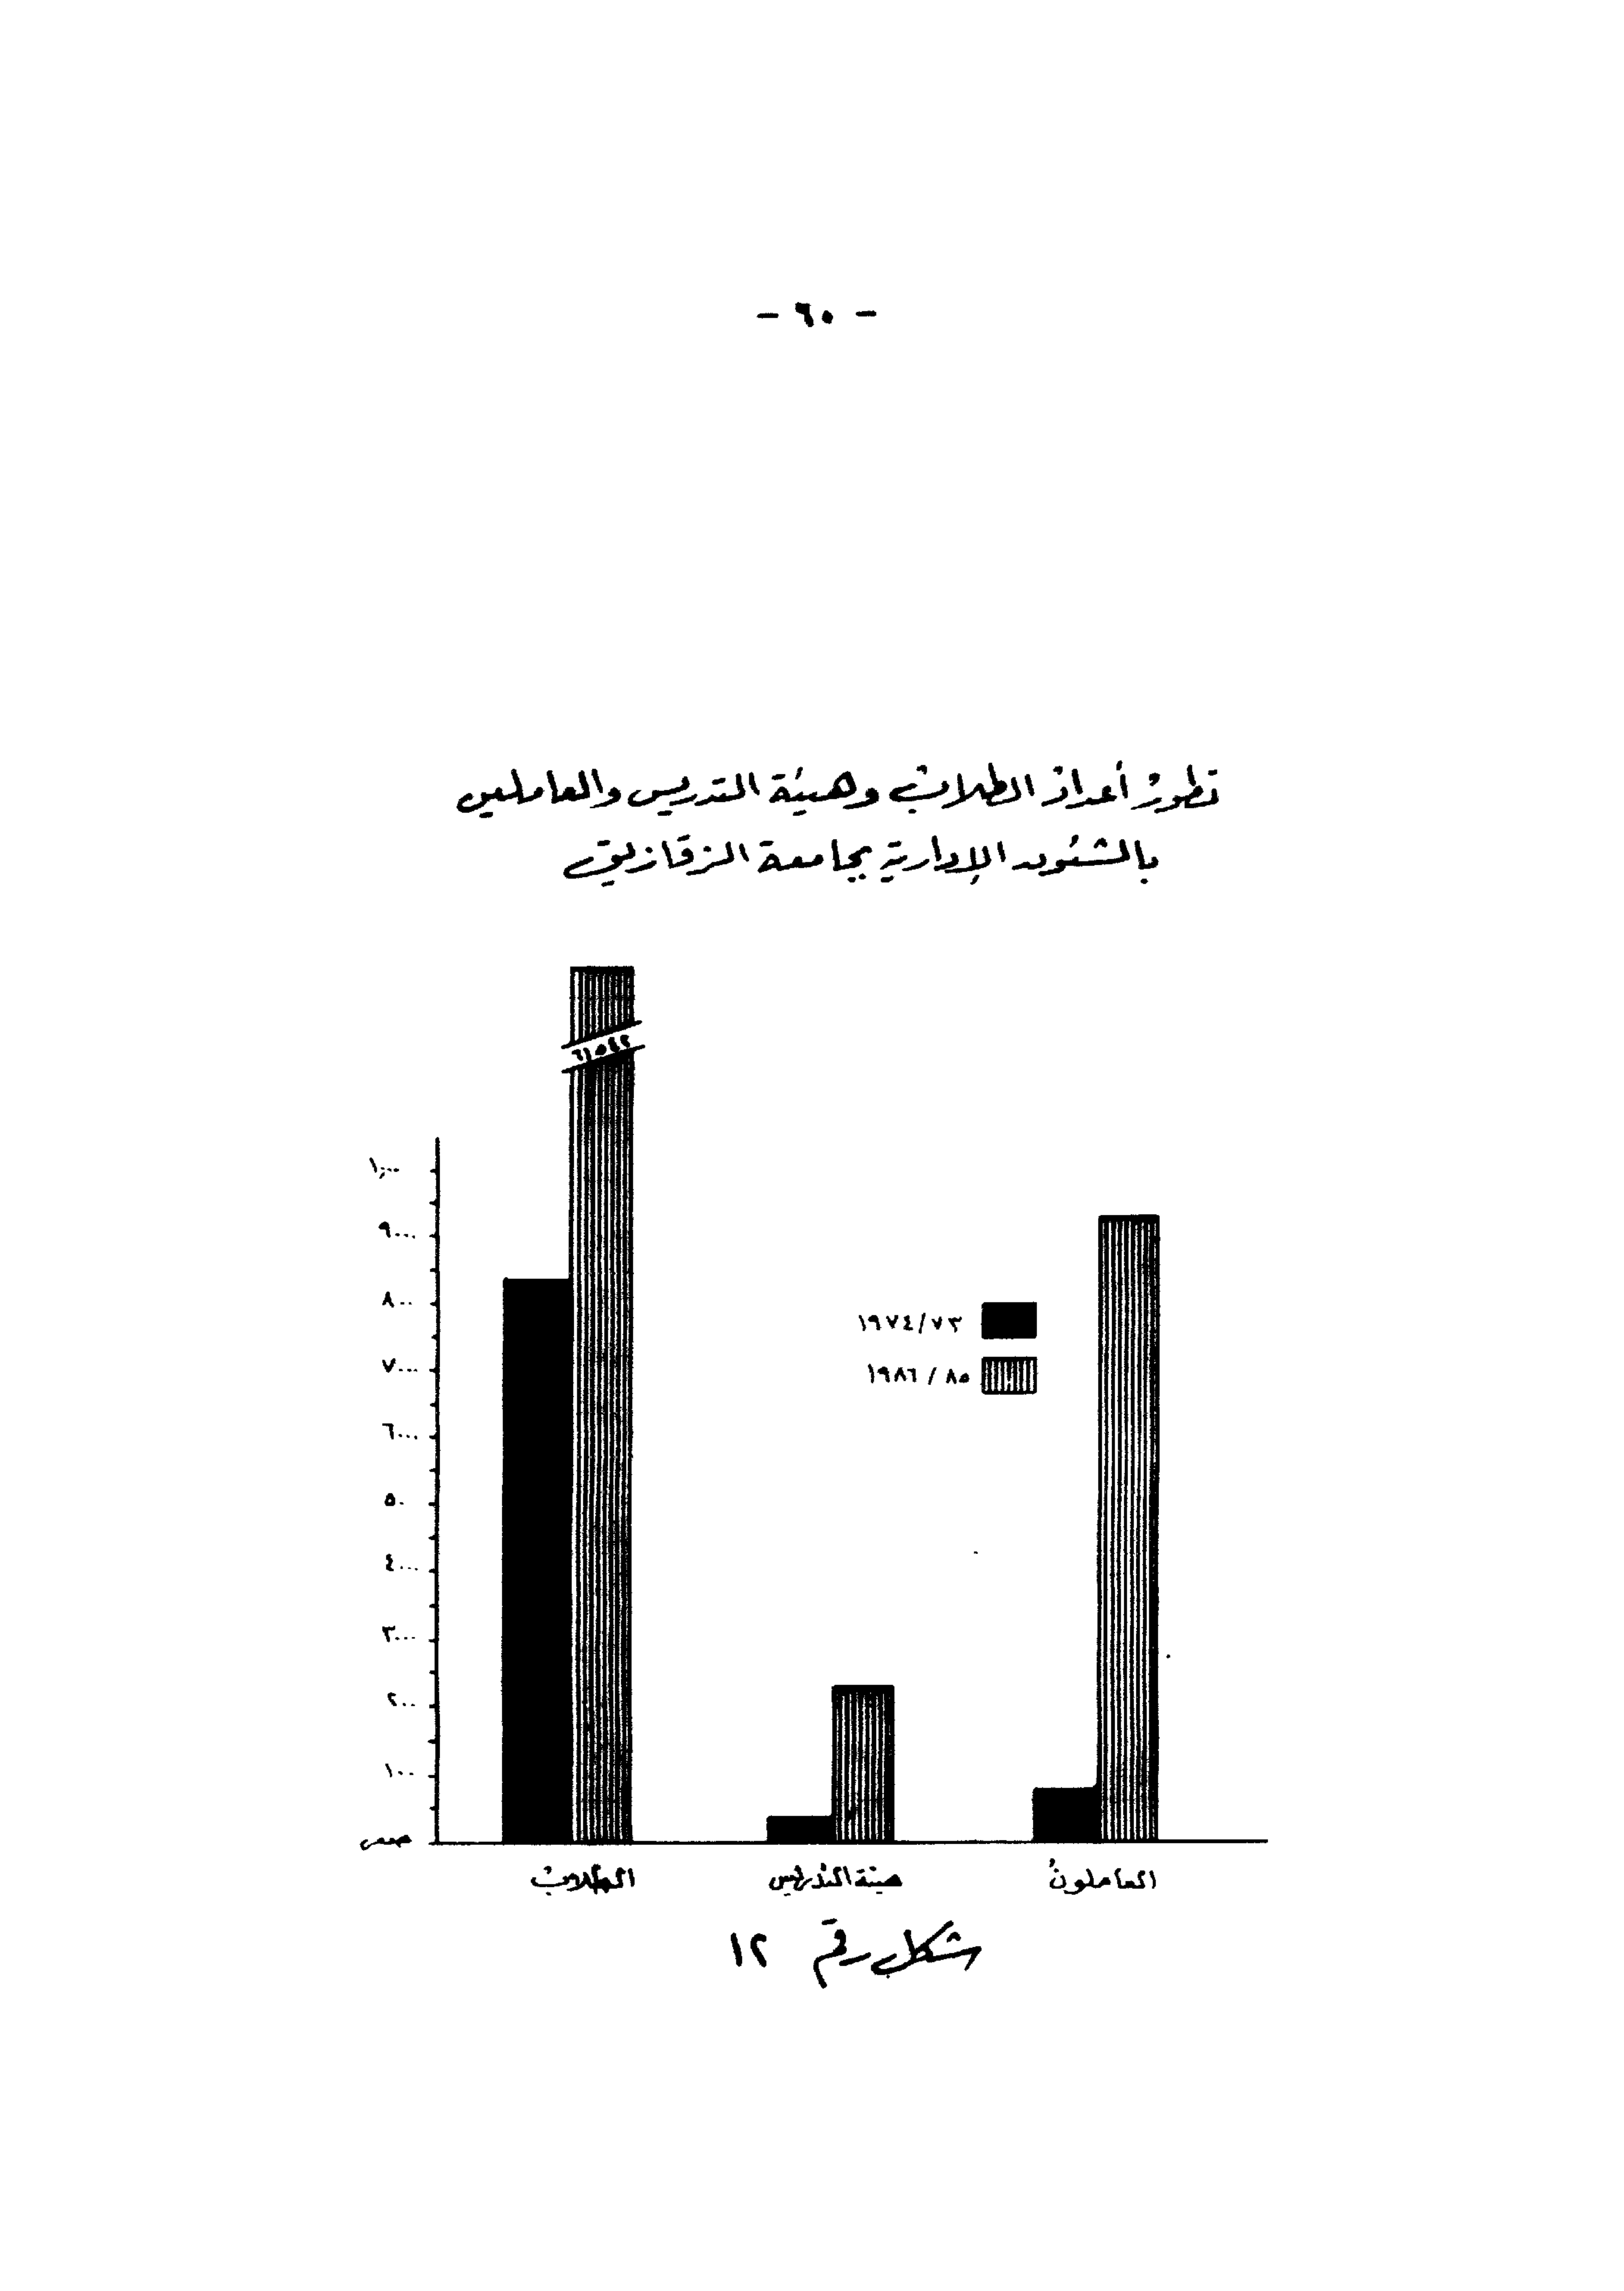 - ٦٠ -
تطور أعداد الطلاب وهيئة التدريس والعاملين
بالشئون الإدارية بجامعة الزقازيق
٦١٥٤٢
١٠٠٠٠
٩٠٠٠
٨٠٠٠
٧٠٠٠
٦٠٠٠
٥٠
٤٠٠٠
٣٠٠٠
٢٠٠٠
١٠٠٠
صفر
١٩٧٤/٧٣
١٩٨٦/٨٥
الطلاب
هيئة التدريس
العاملون
شكل رقم ١٢